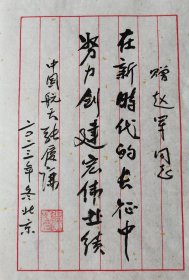 赠赵军同志
在新时代的长征中
努力创建宏伟业绩
中国航天张履谦
二〇二三年冬北京